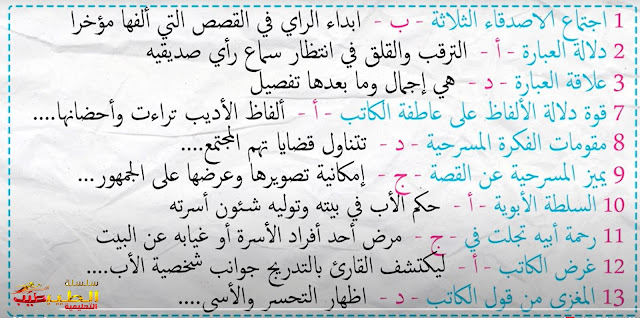 1 اجتماع الاصدقاء الثلاثة - ب - ابداء الراي في القصص التي ألفها مؤخرا
2 دلالة العبارة - أ - الترقب والقلق في انتظار سماع رأي صديقيه
3 علاقة العبارة - د - هي إجمال وما بعدها تفصيل
7 قوة دلالة الألفاظ على عاطفة الكاتب - أ - ألفاظ الأديب تراءت وأحضانها....
8 مقومات الفكرة المسرحية - د - تتناول قضايا تهم المجتمع....
9 يميز المسرحية عن القصة - ج - إمكانية تصويرها وعرضها على الجمهور...
10 السلطة الأبوية - أ - حكم الأب في بيته وتوليه شئون أسرته
11 رحمة أبيه تجلت في - ج - مرض أحد أفراد الأسرة أو غيابه عن البيت
12 غرض الكاتب - أ - ليكتشف القارئ بالتدريج جوانب شخصية الأب....
13 المغزى من قول الكاتب - د - اظهار التحسر والأسى....
سلسلة
الطيب طيب
التعليمية